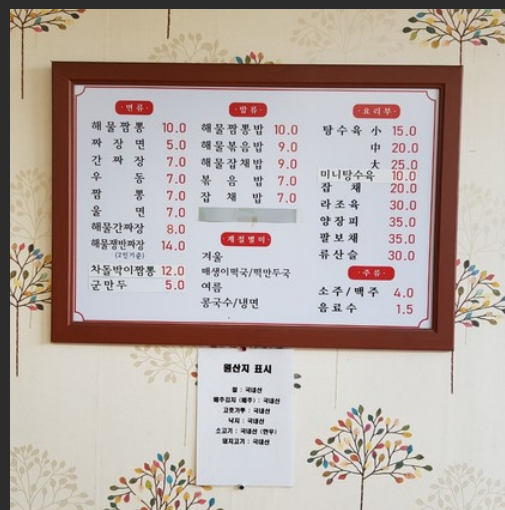 ·면류·
해물짬뽕 10.0
짜장면 5.0
간짜장 7.0
우동 7.0
짬뽕 7.0
울면 7.0
해물간짜장 8.0
해물쟁반짜장 14.0
(2인기준)
차돌박이짬뽕 12.0
군만두 5.0
·밥류·
해물짬뽕밥 10.0
해물볶음밥 9.0
해물잡채밥 9.0
볶음밥 7.0
잡채밥 7.0
·계절별미·
겨울
매생이떡국/떡만두국
여름
콩국수/냉면
·요리부·
탕수육 小 15.0
中 20.0
大 25.0
미니탕수육 10.0
잡채 20.0
라조육 30.0
양장피 35.0
팔보채 35.0
류산슬 30.0
·주류·
소주/맥주 4.0
음료수 1.5
원산지 표시
쌀 : 국내산
배추김치 (배추) : 국내산
고춧가루 : 국내산
낙지 : 국내산
소고기 : 국내산 (한우)
돼지고기 : 국내산